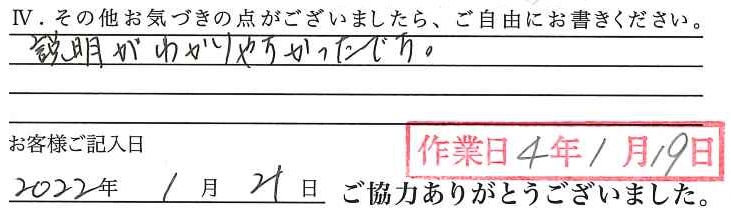 Ⅳ．その他お気づきの点がございましたら、ご自由にお書きください。
説明がわかりやすかったです。
お客様ご記入日
作業日4年1月19日
2022年 1月 21日 ご協力ありがとうございました。